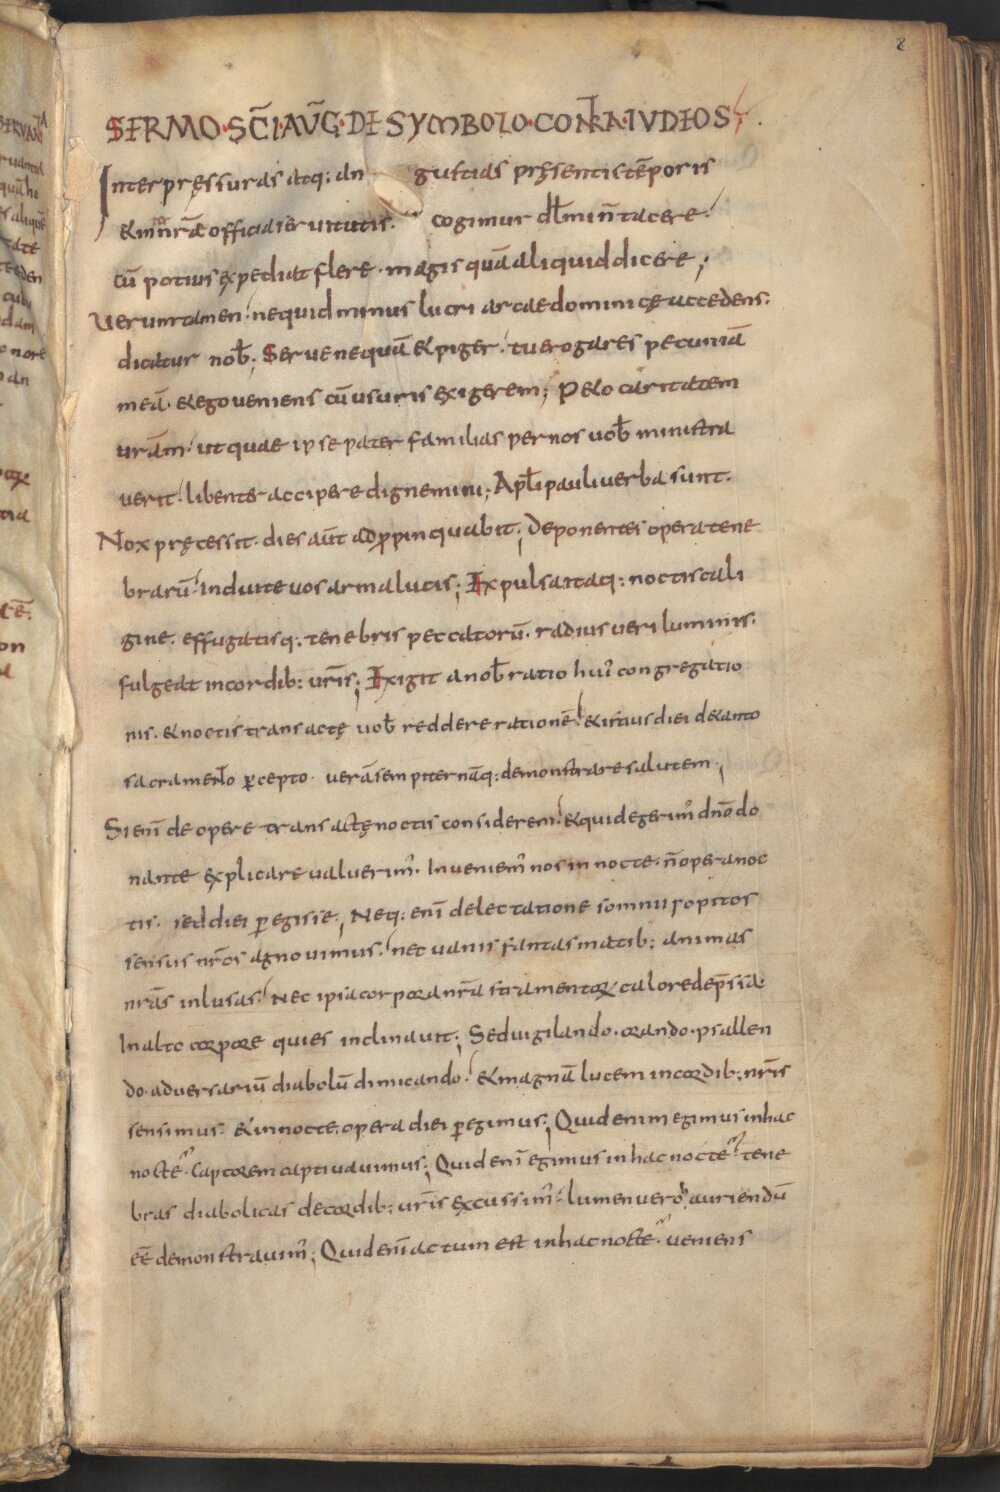 8
SERMO·SC̄I·AVḠ·DE SYMBOLO·CONTRA·IVDEOS
Inter pręssuras atq: an gustias pręsentis tēporis
& in nr̄ae officia seruitutis· cogimur dł min̄ tacere·
cū potius expediat flere· magis quā aliquid dicere;
Uerumtamen· nequid minus lucri arcae dominicę accedens·
dicatur nob̄; Serue nequā & piger· tu erogares pecuniā
meā· & ego ueniens cū usuris exigerem; Peto caritatem
urām· ut quae ipse pater familias per nos uob̄ ministra
uerit· libenter accipere dignemini; Apłi pauli uerba sunt·
Nox pręcessit· dies aūt adp̱pinquabit; Deponentes opera tene
brarū· induite uos arma lucis; Expulsa itaq: noctis cali
gine· effugatisq: tenebris peccatorū· radius ueri luminis·
fulgeat in cordib: ur̄is; Exigit a nob̄ ratio hui᾽ congregatio
nis· & noctis transactę uob̄ reddere rationē· & istius diei de tanto
sacramento ꝑcepto· uerā sempiternāq: demonstrare salutem;
Si enī de opere transactę noctis considerem᾽· & quid egerim᾽ dn̄o do
nante explicare ualuerim᾽· Inueniem᾽ nos in nocte· n̄ opera noc
tis· sed diei ꝑegisse; Neq: enī delectatione somni sopitos
sensus nr̄os agnouimus· nec uanis fantasmatib: animas
nrās inlusas· Nec ipsa corpora nr̄a stramentorꝝ calore dep̄ssa·
In alto corpore quies inclinauit; Sed uigilando· orando· psallen
do· aduersariū diabolū dimicando· & magnā lucem in cordib: nr̄is
sensimus· & in nocte· opera diei ꝑegimus; Quid enim egimus in hac
nocte· Captorem captiuauimus; Quid enī egimus in hac nocte· tene
bras diabolicas de cordib: ur̄is excussim᾽· lumen uero hauriendū
eē demonstrauim᾽; Quid enī actum est in hac nocte· ueniens